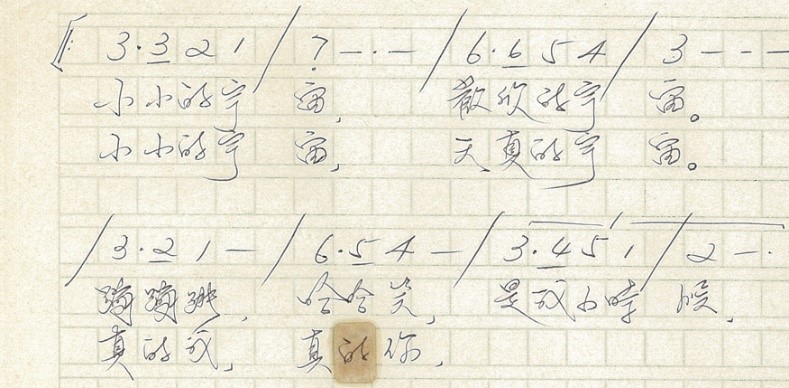 3·3 2 1 / 7 — · — / 6·6 5 4 / 3 — — —
小小的宇 宙, 歡欣的宇 宙。
小小的宇 宙, 天真的宇 宙。
/ 3·2 1 — / 6·5 4 — / 3·4 5 1 / 2 — ·
蹦蹦跳, 哈哈笑, 是我小時 候,
真的我, 真的你,